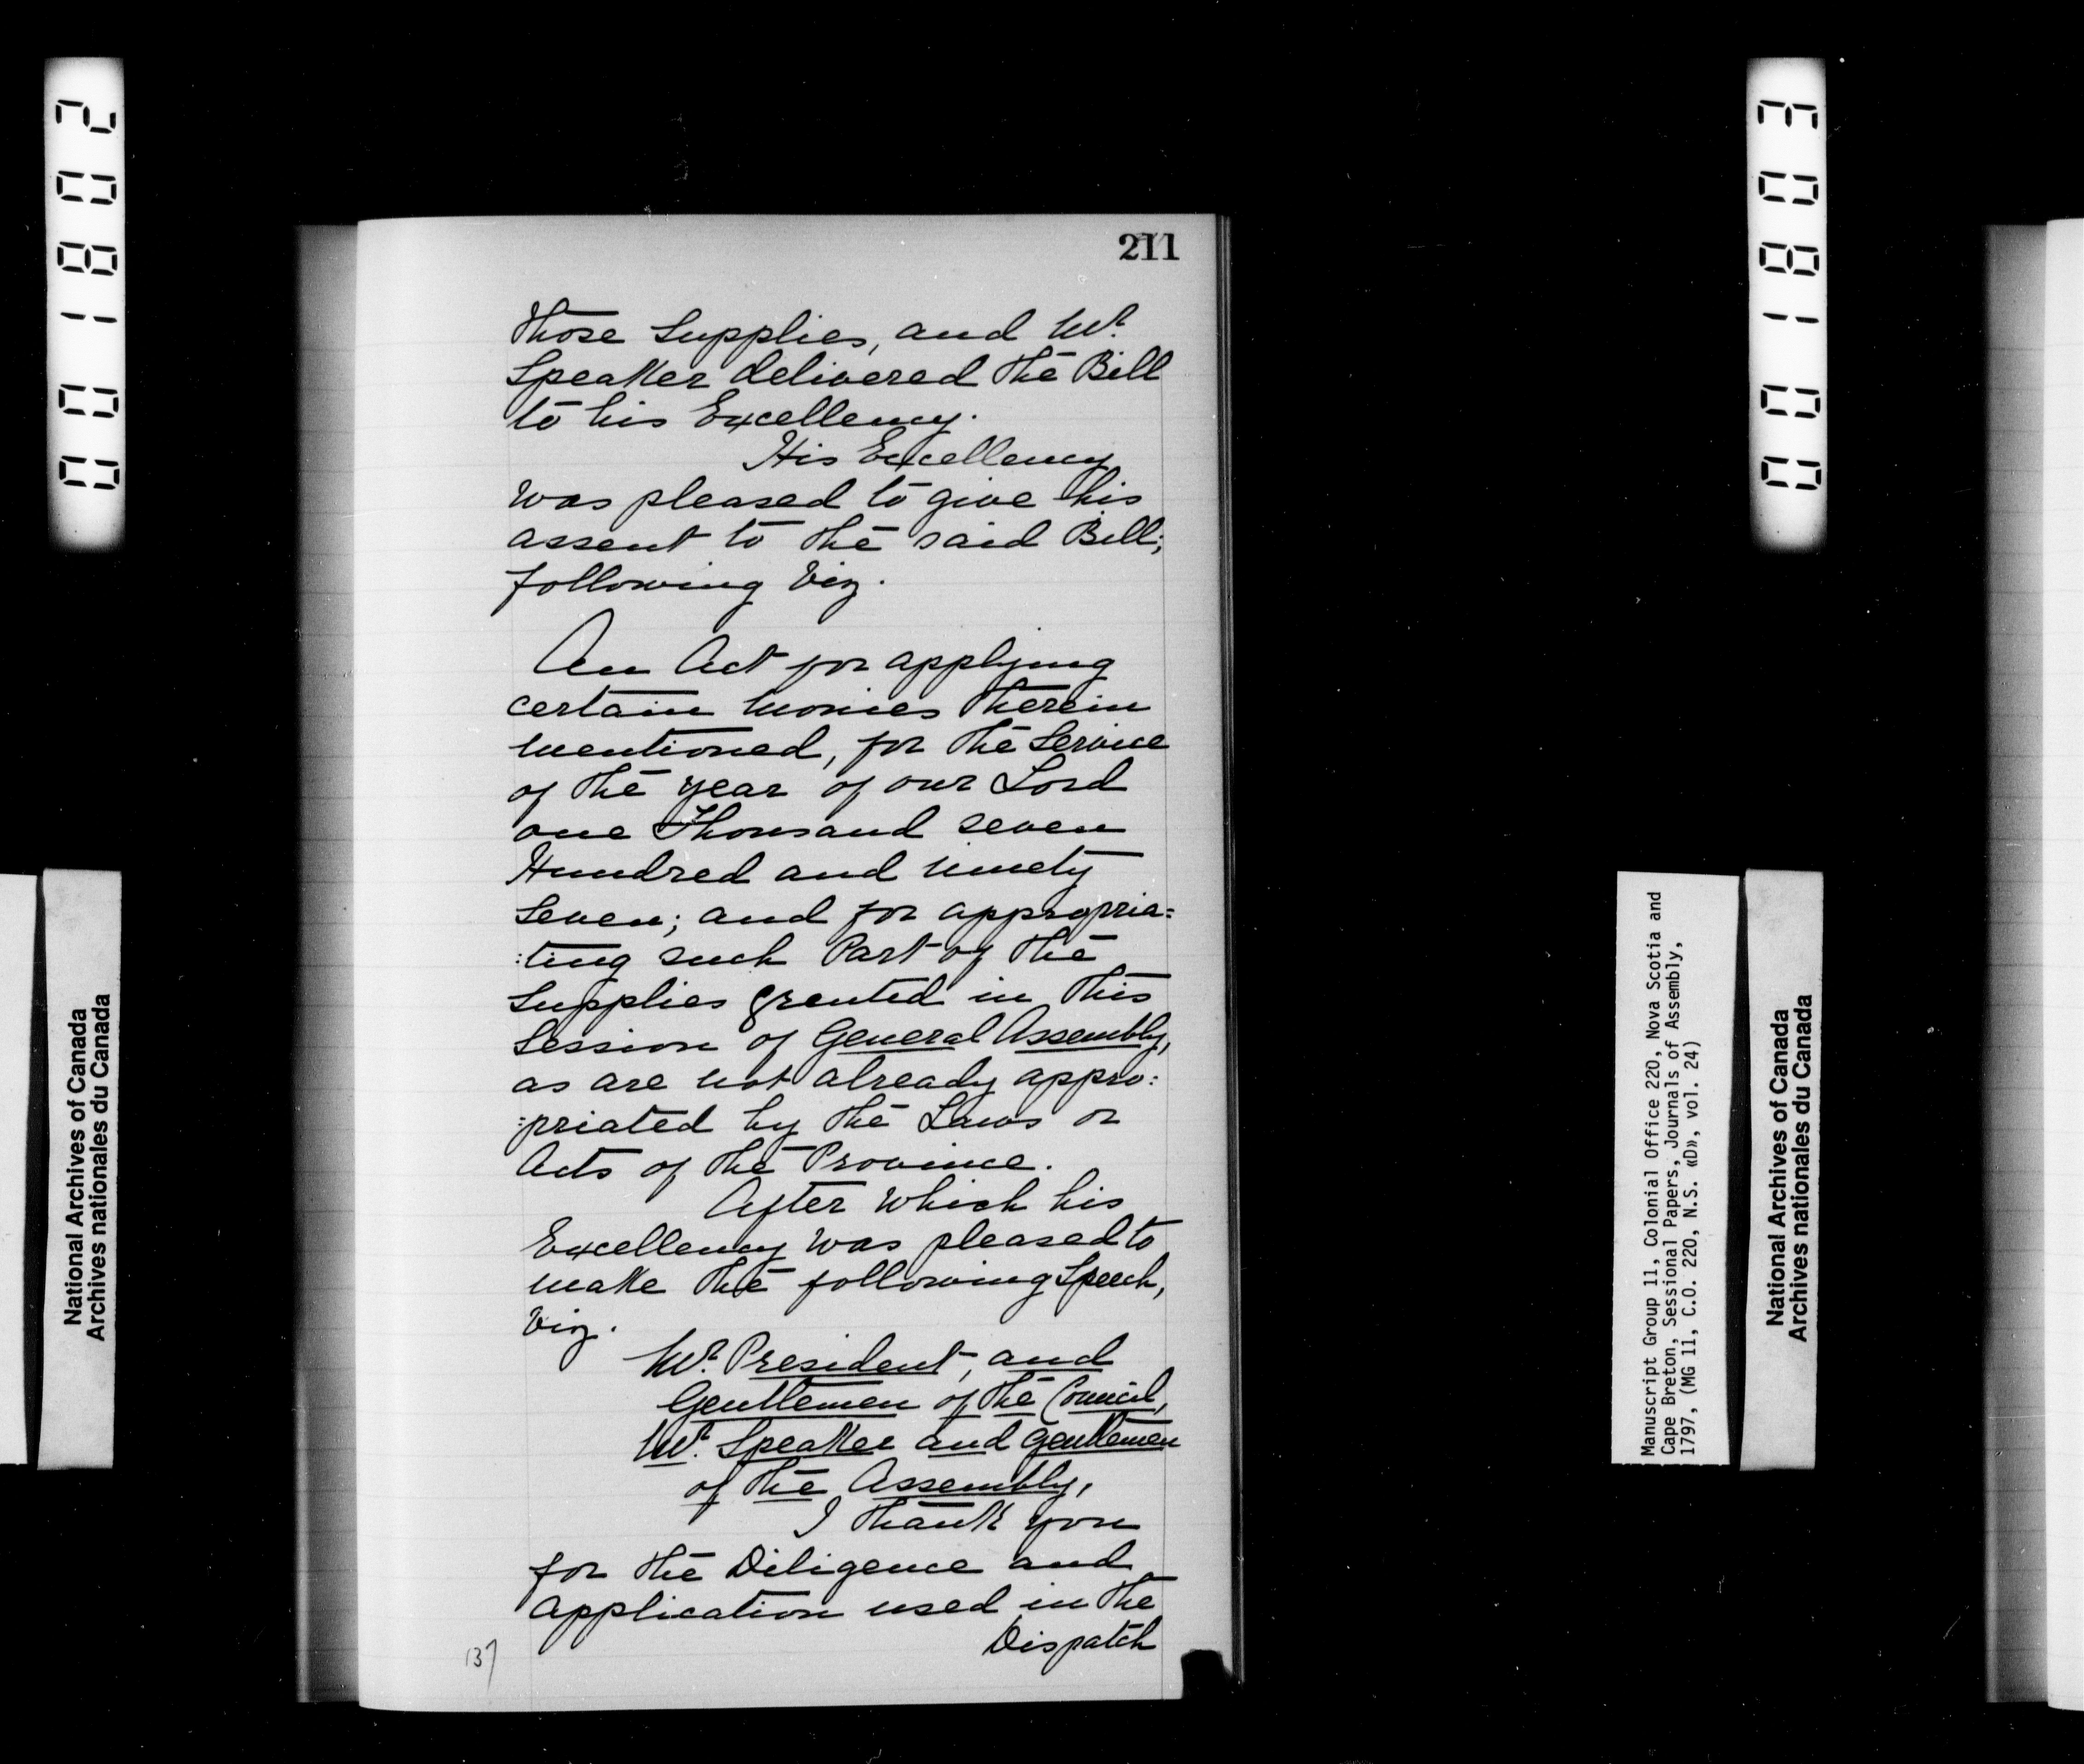 001802
National Archives of Canada
Archives nationales du Canada
211
those Supplies, and Mr.
Speaker delivered the Bill
to his Excellency.
His Excellency
was pleased to give his
assent to the said Bill;
following Viz.
An Act for applying
certain monies therein
mentioned, for the Service
of the year of our Lord
one Thousand seven
Hundred and ninety
Seven; and for appropria=
:ting such Part of the
Supplies granted in this
Session of General Assembly,
as are not already appro:
:priated by the Laws or
Acts of the Province.
After which his
Excellency was pleased to
make the following Speech,
Viz.
Mr. President, and
Gentlemen of the Council,
Mr. Speaker and Gentlemen
of the Assembly,
I thank you
for the Diligence and
Application used in the
Dispatch
137
001803
Manuscript Group 11, Colonial Office 220, Nova Scotia and
Cape Breton, Sessional Papers, Journals of Assembly,
1797, (MG 11, C.O. 220, N.S. «D», vol. 24)
National Archives of Canada
Archives nationales du Canada